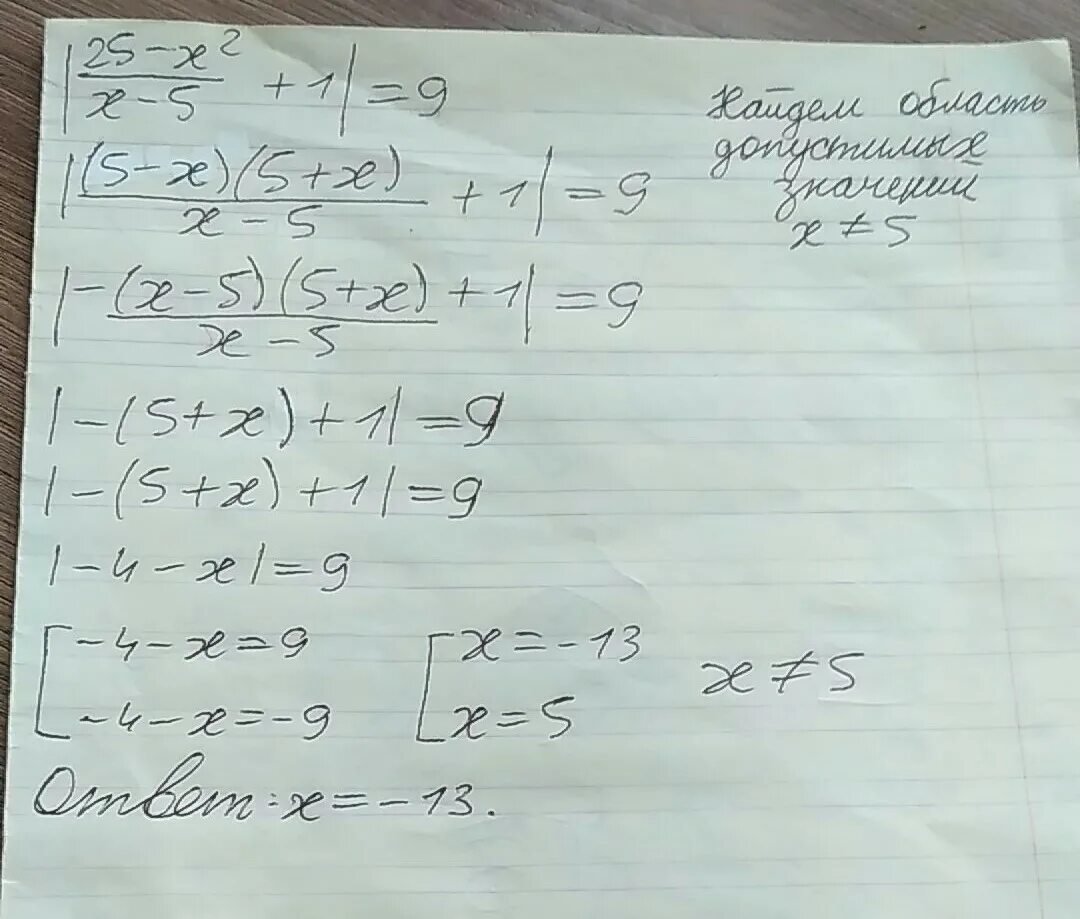 |(25-x²)/(x-5) + 1| = 9
Найдем область
допустимых
значений
x ≠ 5
|((5-x)(5+x))/(x-5) + 1| = 9
|-((x-5)(5+x))/(x-5) + 1| = 9
|-(5+x)+1| = 9
|-(5+x)+1| = 9
|-4-x| = 9
[-4-x=9 [x=-13 x ≠ 5
-4-x=-9 x=5
Ответ: x=-13.